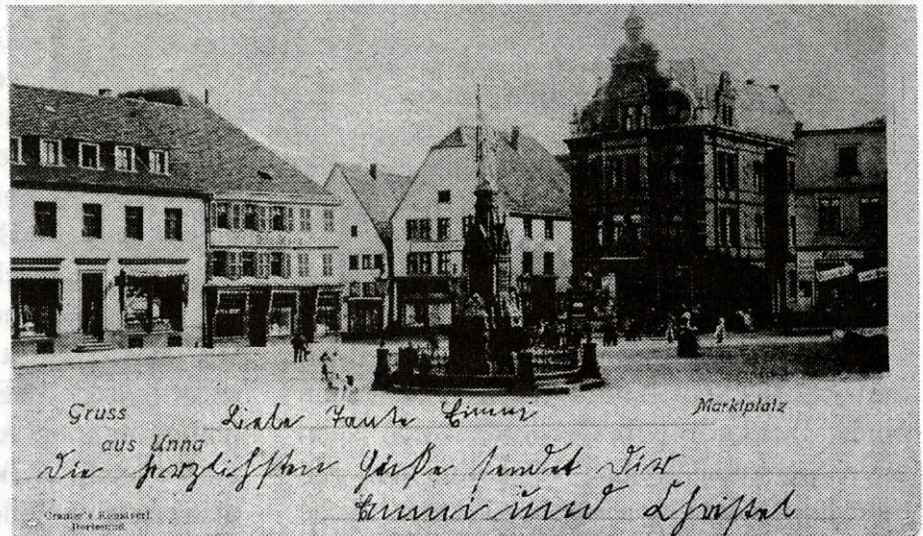 Gruss
aus Unna
Marktplatz
Liebe Tante Emmi
Die herzlichsten Grüße sendet Dir
Emmi und Christel
Cramer's Kunstverl.
Dortmund